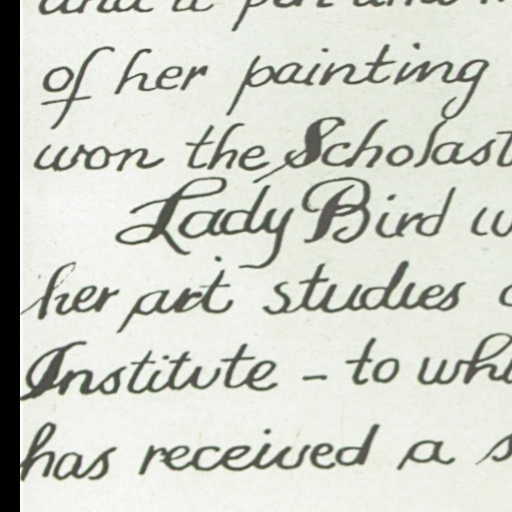 of her painting
won the Scholast
Lady Bird w
her art studies
Institute - to whi
has received a s